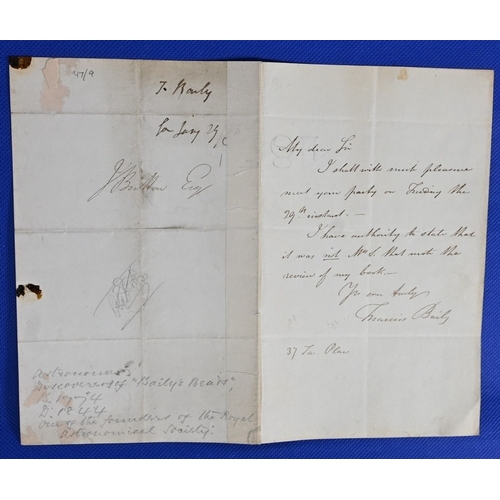 47/9
F Baily
for Jany 29
J Britton Esq
Astronomer
Discoverer of "Baily's Beads",
B. 1774
D. 1844
One of the founders of the Royal
Astronomical Society.
My dear Sir
I shall with much pleasure
meet your party on Friday the
29th instant. —
I have authority to state that
it was not Mrs S. that wrote the
review of my book —
Yrs very truly
Francis Baily
37 Ta. Place